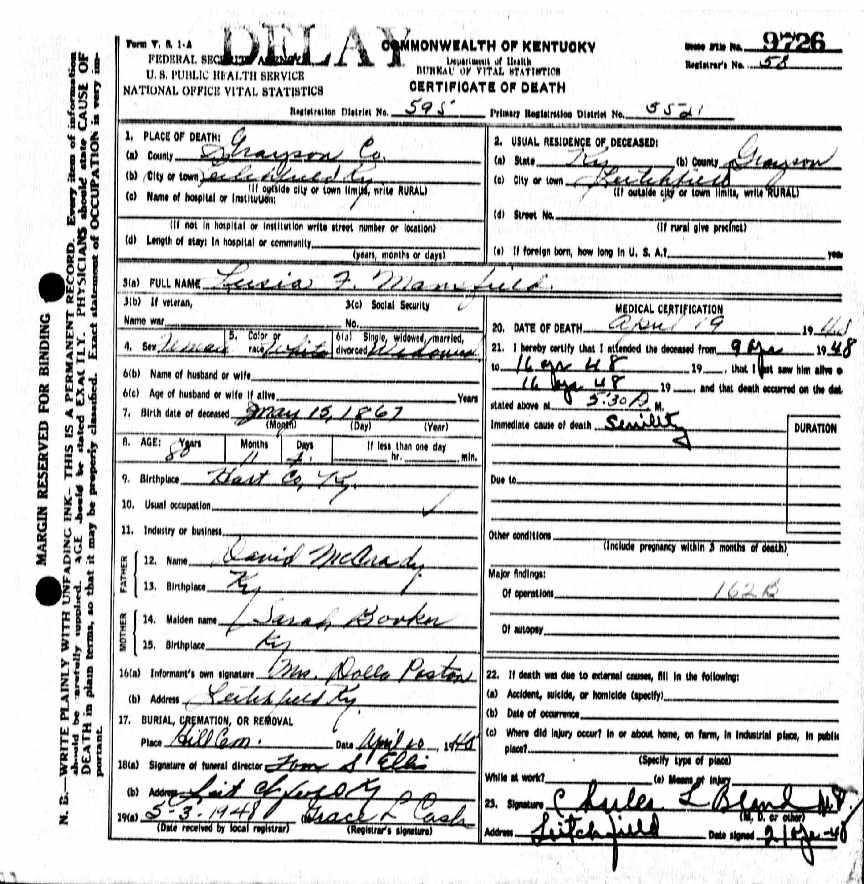 Form V. S. 1-A
DELAY
COMMONWEALTH OF KENTUCKY
FEDERAL SECURITY AGENCY
U. S. PUBLIC HEALTH SERVICE
NATIONAL OFFICE VITAL STATISTICS
Department of Health
BUREAU OF VITAL STATISTICS
CERTIFICATE OF DEATH
File No. 9726
Registrar's No. 58
Registration District No. 595
Primary Registration District No. 5521
MARGIN RESERVED FOR BINDING
N. B.—WRITE PLAINLY WITH UNFADING INK—THIS IS A PERMANENT RECORD. Every item of information
should be carefully supplied. AGE should be stated EXACTLY. PHYSICIANS should state CAUSE OF
DEATH in plain terms, so that it may be properly classified. Exact statement of OCCUPATION is very im-
portant.
1. PLACE OF DEATH:
(a) County Grayson Co.
(b) City or town Leitchfield Ky
(If outside city or town limits, write RURAL)
(c) Name of hospital or institution:
(If not in hospital or institution write street number or location)
(d) Length of stay: In hospital or community
(years, months or days)
2. USUAL RESIDENCE OF DECEASED:
(a) State Ky (b) County Grayson
(c) City or town Leitchfield
(If outside city or town limits, write RURAL)
(d) Street No.
(If rural give precinct)
(e) If foreign born, how long in U. S. A.? year
3(a) FULL NAME F. Mansfield.
3(b) If veteran,
Name war
3(c) Social Security
No.
4. Sex
5. Color or
race White
6(a) Single, widowed, married,
divorced Widowed
6(b) Name of husband or wife
6(c) Age of husband or wife if alive Years
7. Birth date of deceased May 15, 1867
(Month) (Day) (Year)
8. AGE: Years Months Days If less than one day
80 11 hr. min.
9. Birthplace Hart Co, Ky.
10. Usual occupation ✓
11. Industry or business
FATHER
12. Name David McCrady
13. Birthplace Ky
MOTHER
14. Maiden name Sarah Booker
15. Birthplace Ky
16(a) Informant's own signature Mrs. Dolla Poston
(b) Address Leitchfield Ky.
17. BURIAL, CREMATION, OR REMOVAL
Place Date April 20, 1948
18(a) Signature of funeral director Tom S Ellis
(b) Address Leitchfield Ky
19(a) 5-3-1948 Grace L Cash
(Date received by local registrar) (Registrar's signature)
MEDICAL CERTIFICATION
20. DATE OF DEATH April 19 1948
21. I hereby certify that I attended the deceased from 9 Apr 1948
to 16 Apr 48 19 , that I last saw him alive o
16 Apr 48 19 , and that death occurred on the dat
stated above at 5:30 P M.
Immediate cause of death Senility
DURATION
Due to
Other conditions
(Include pregnancy within 3 months of death)
Major findings:
Of operations 162B
Of autopsy
22. If death was due to external causes, fill in the following:
(a) Accident, suicide, or homicide (specify)
(b) Date of occurrence
(c) Where did injury occur? In or about home, on farm, in industrial place, in public
place?
(Specify type of place)
While at work? (e) Means of injury
23. Signature Charles L Bland M.D.
(M. D. or other)
Address Leitchfield Date signed 21 Apr-48